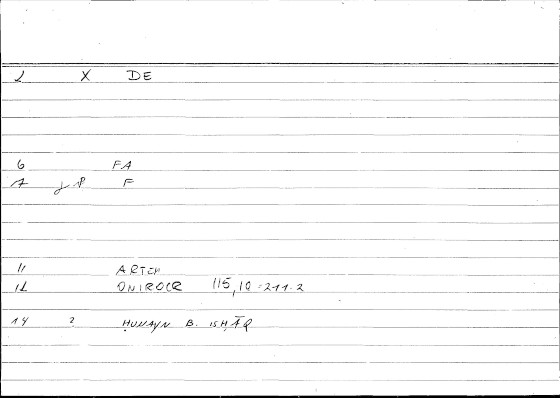 2 X DE
6 FA
7 F
11 ARTEM
12 ONIROCR 115,10 = 211.2
14 ? ḤUNAYN B. ISḤĀQ